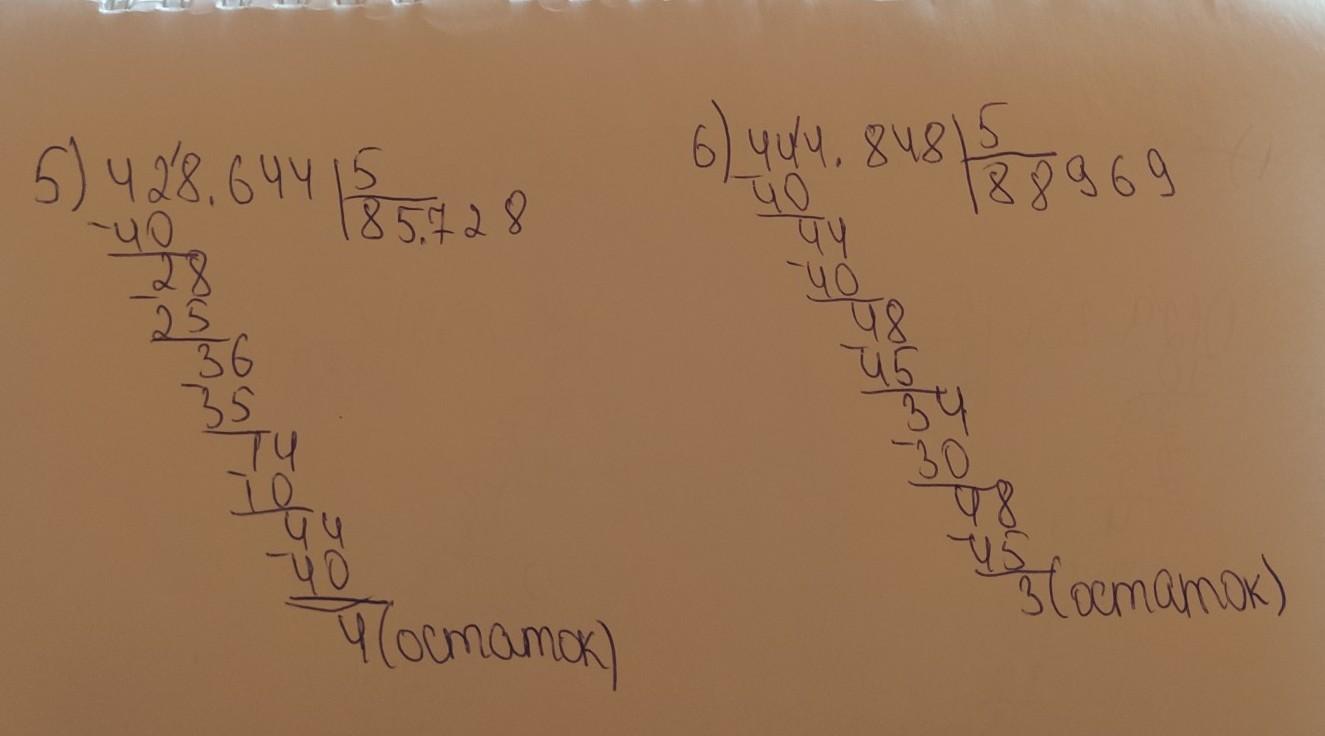 5) 428.644 | 5
85.728
-40
-28
25
-36
35
-14
10
-44
40
4 (остаток)
6) 444.848 | 5
88969
-40
44
-40
48
-45
34
-30
48
-45
3 (остаток)